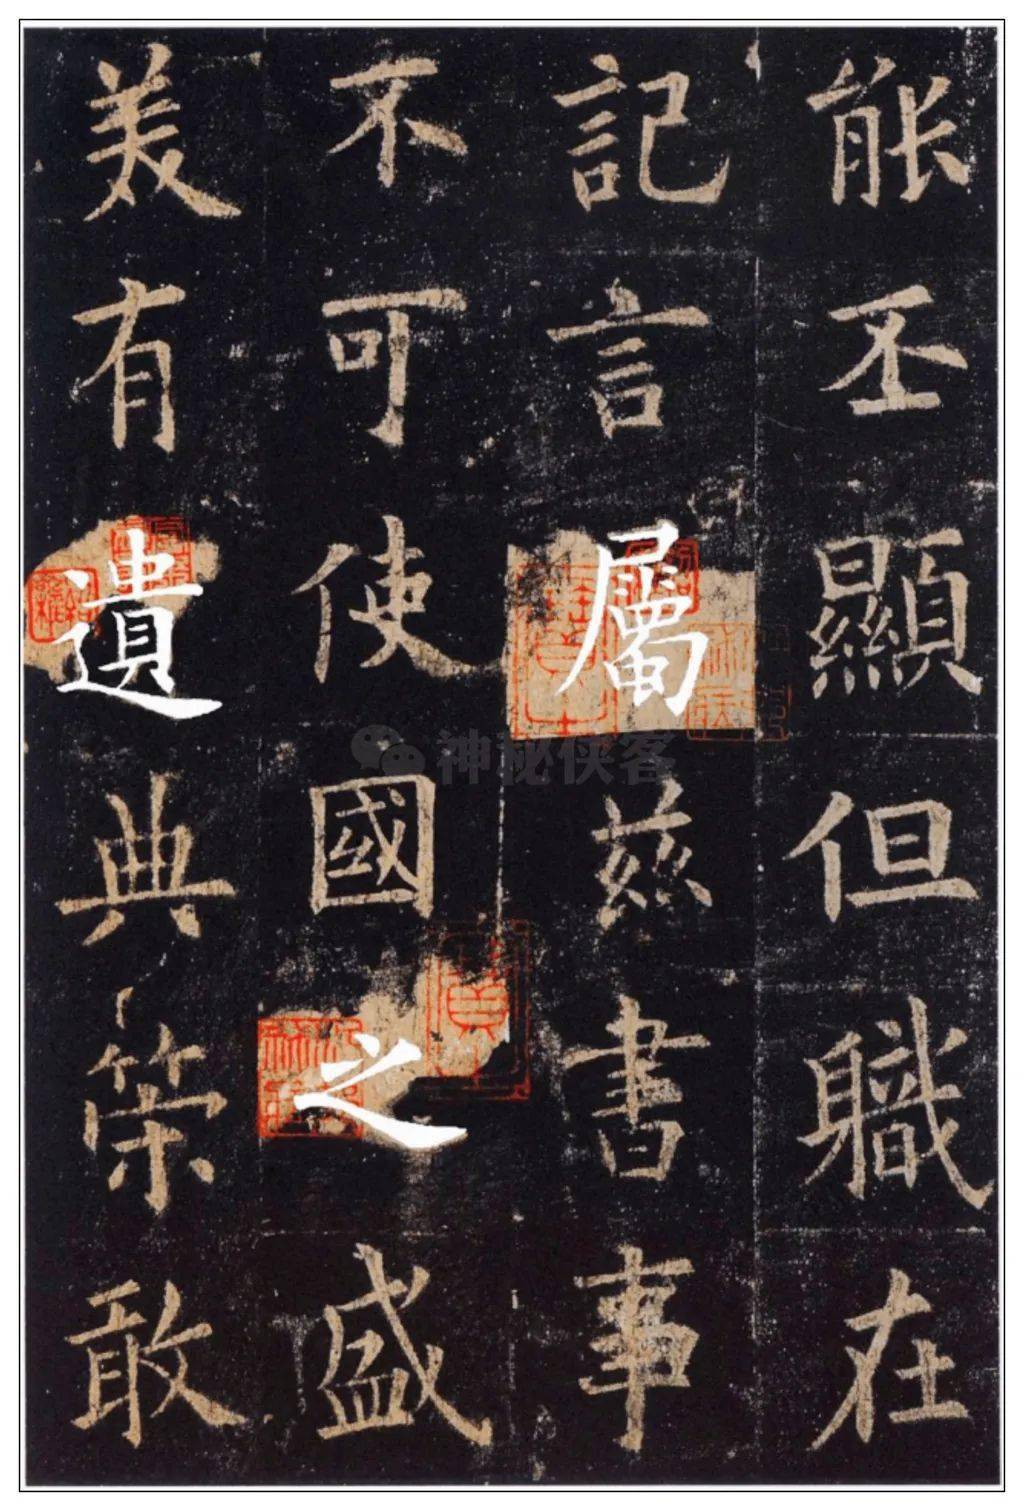 能丕顯但職在
記言屬茲書事
不可使國之盛
美有遺典策敢
神秘侠客